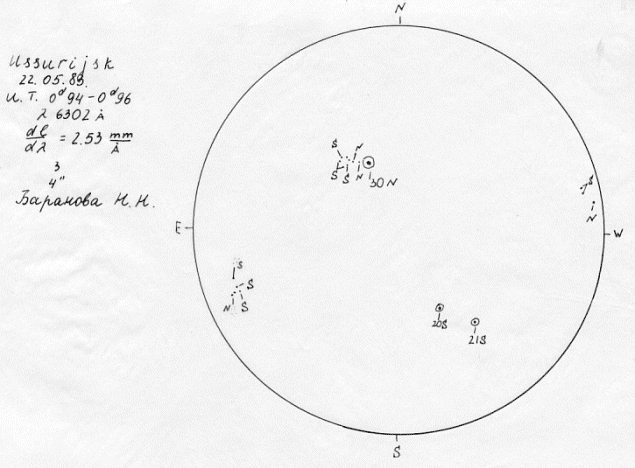 Ussurijsk
22.05.89.
U.T. 0ᵈ94-0ᵈ96
λ 6302 Å
dl/dλ = 2.53 mm/Å
3
4"
Баранова Н.Н.
N
S N
S S N 30N
S
N
E
W
S
S
N S
20S
21S
S